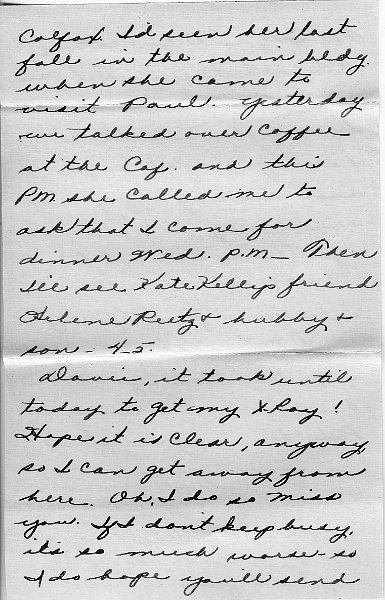 Colfax. I'd seen her last
fall in the main bldg.
when she came to
visit Paul. Yesterday
we talked over coffee
at the Caf. and this
PM she called me to
ask that I come for
dinner Wed. P.M. - Then
I'll see Kate Kellip friend
Helene Reitz & hubby &
son - 45.
Davie, it took until
today to get my X-Ray!
Hope it is clear, anyway,
so I can get away from
here. Oh, I do so miss
you. If I don't keep busy,
it's so much worse - so
I do hope you'll send